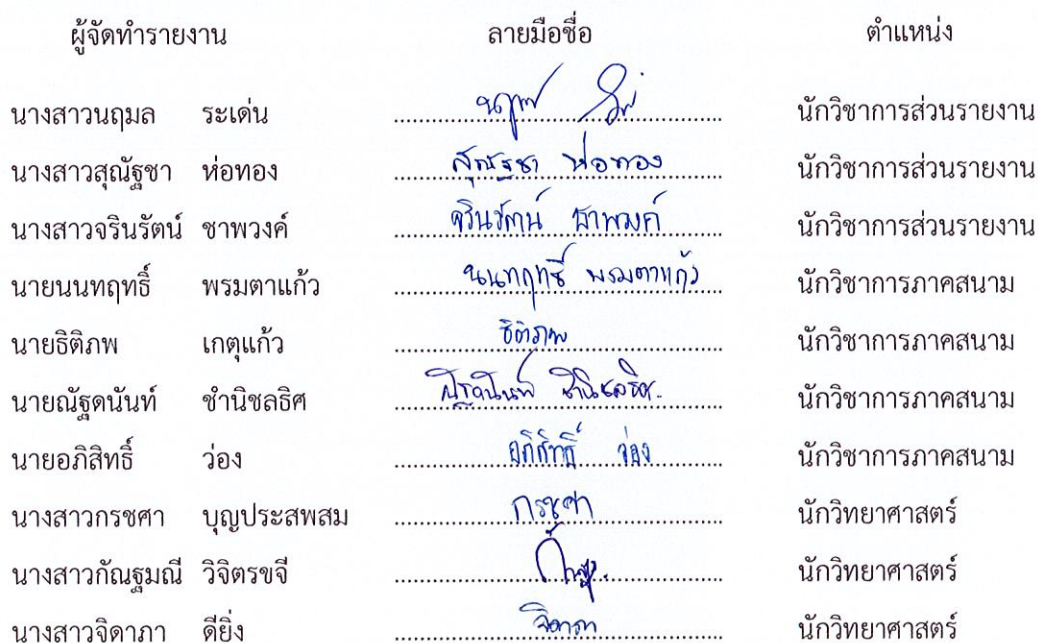 ผู้จัดทำรายงาน ลายมือชื่อ ตำแหน่ง
นางสาวนฤมล ระเด่น นักวิชาการส่วนรายงาน
นางสาวสุณัฐชา ห่อทอง สุณัฐชา ห่อทอง นักวิชาการส่วนรายงาน
นางสาวจรินรัตน์ ชาพวงค์ จรินรัตน์ ชาพวงค์ นักวิชาการส่วนรายงาน
นายนนทฤทธิ์ พรมตาแก้ว นนทฤทธิ์ พรมตาแก้ว นักวิชาการภาคสนาม
นายธิติภพ เกตุแก้ว ธิติภพ นักวิชาการภาคสนาม
นายณัฐดนันท์ ชำนิชลธิศ ณัฐดนันท์ ชำนิชลธิศ นักวิชาการภาคสนาม
นายอภิสิทธิ์ ว่อง อภิสิทธิ์ ว่อง นักวิชาการภาคสนาม
นางสาวกรชศา บุญประสพสม กรชศา นักวิทยาศาสตร์
นางสาวกัณฐมณี วิจิตรขจี นักวิทยาศาสตร์
นางสาวจิดาภา ดียิ่ง จิดาภา นักวิทยาศาสตร์